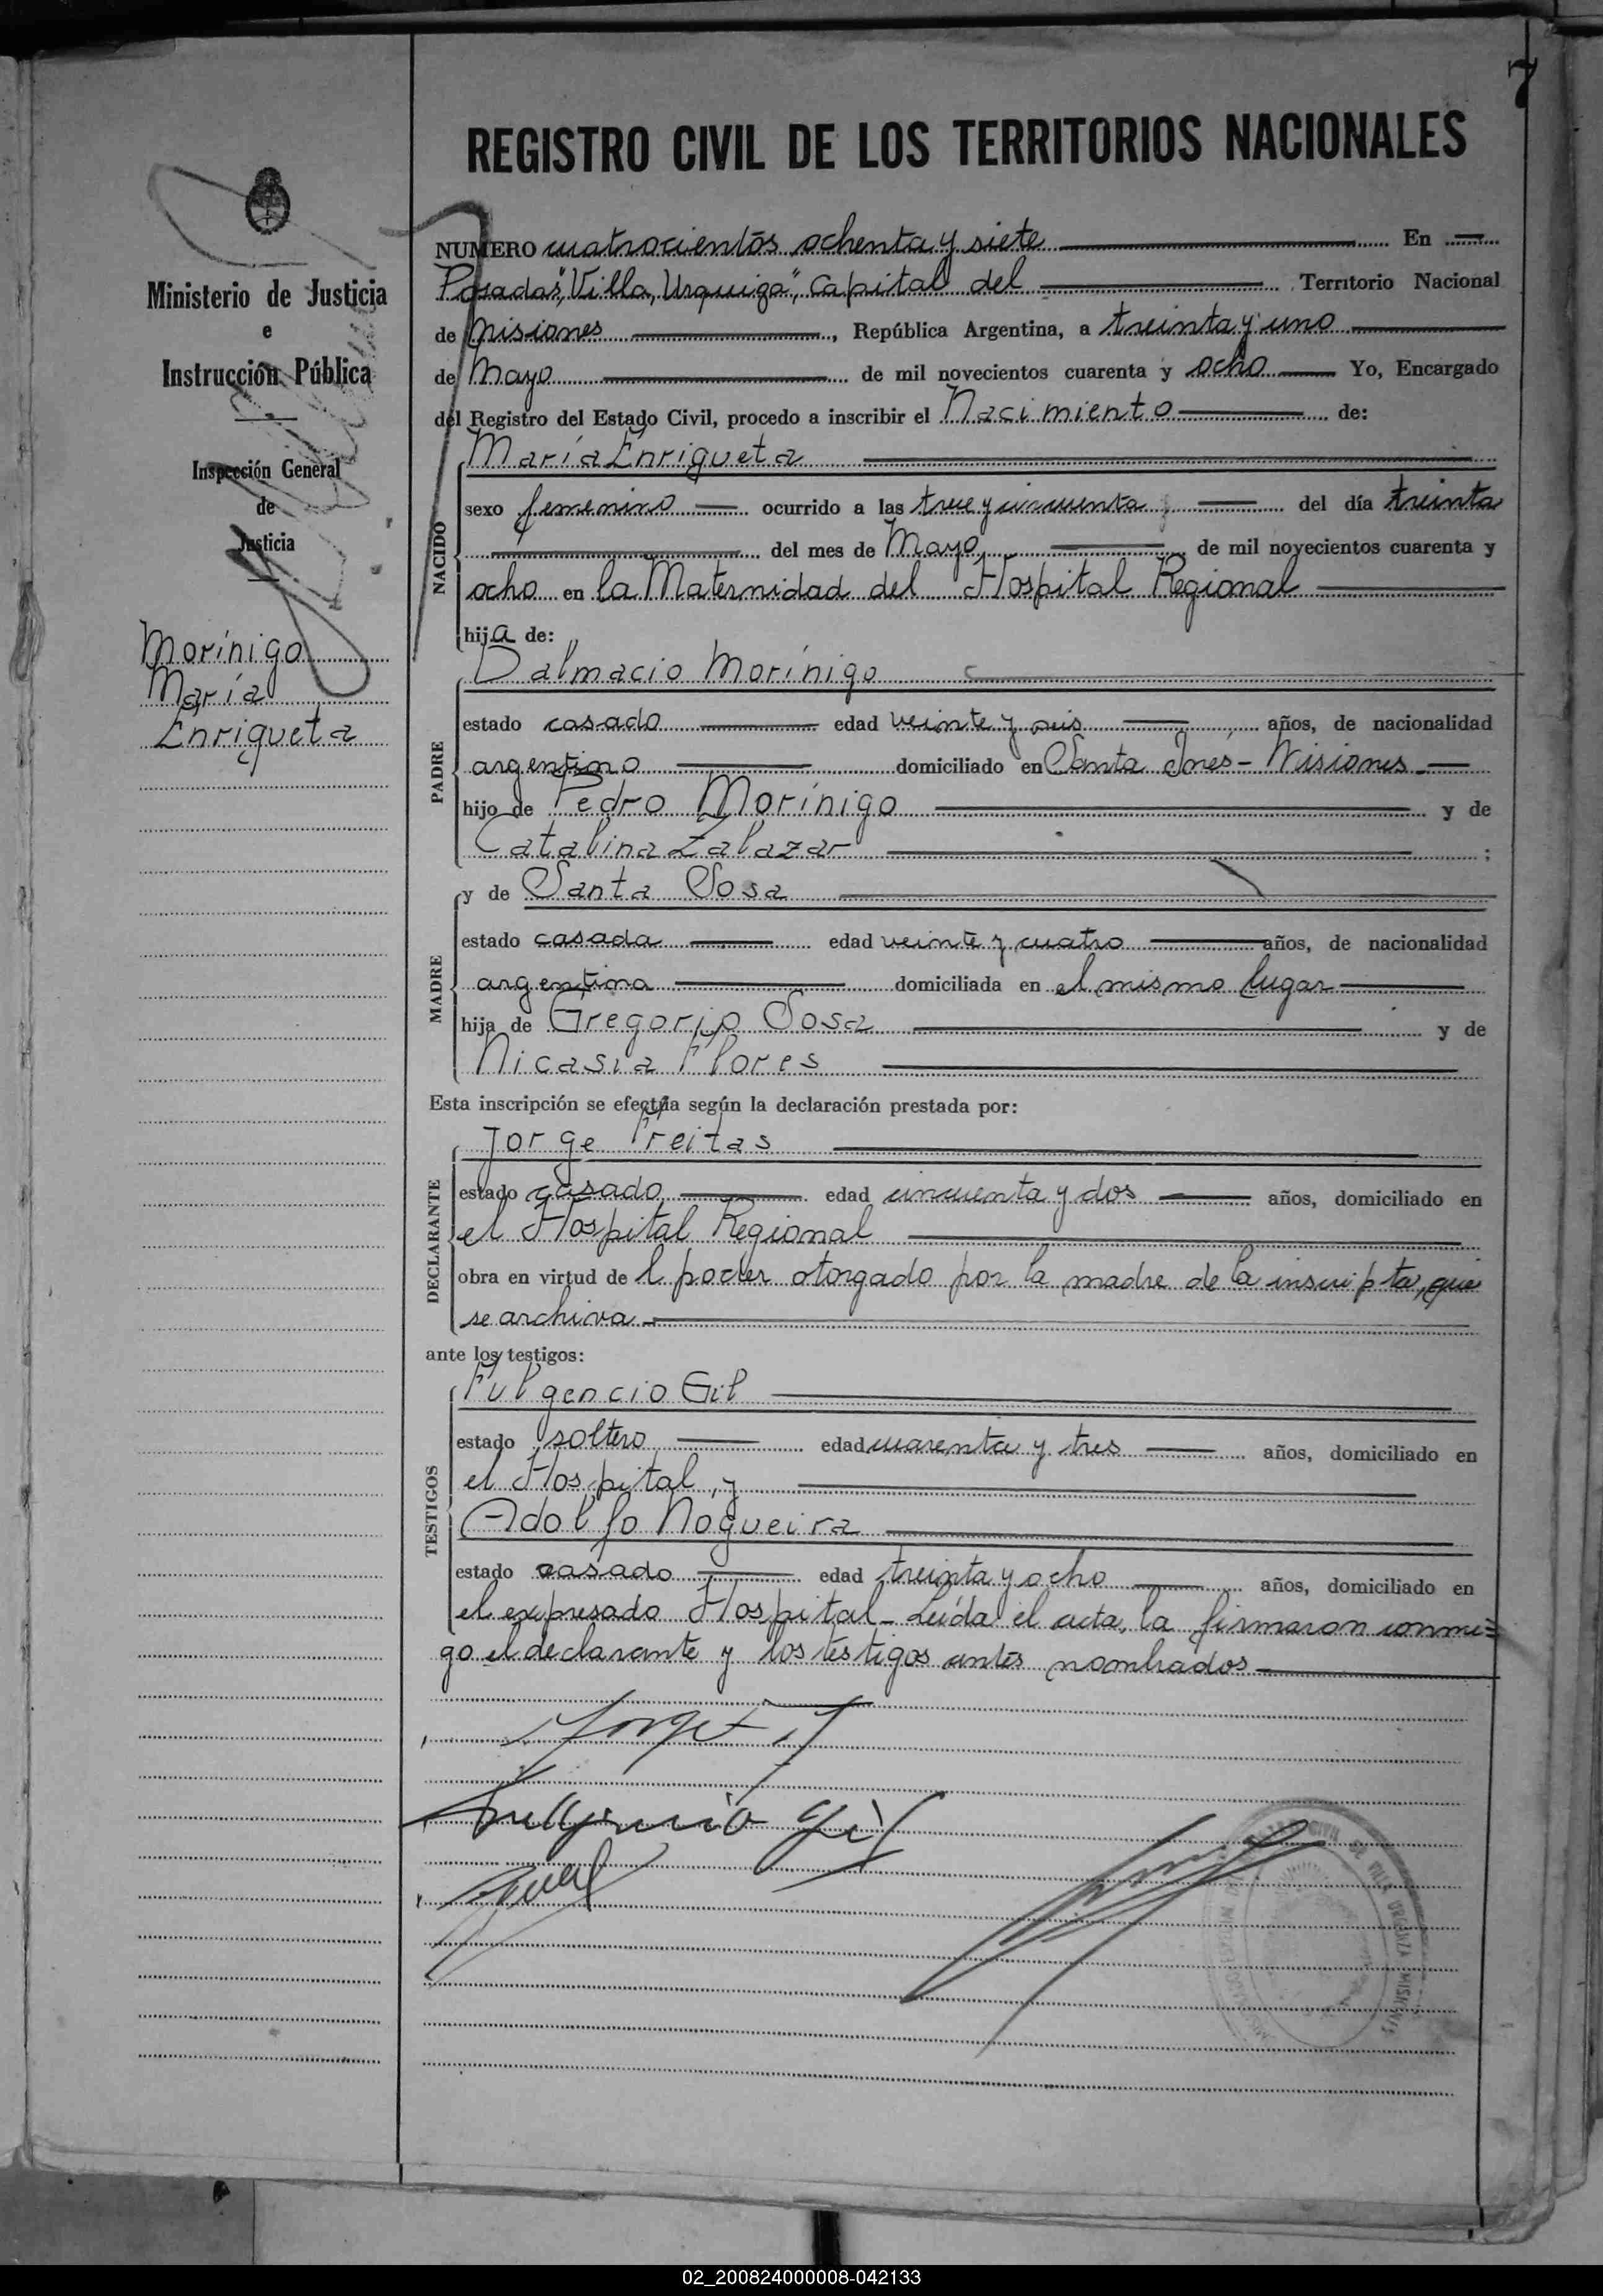 7
REGISTRO CIVIL DE LOS TERRITORIOS NACIONALES
Ministerio de Justicia
e
Instrucción Pública
Inspección General
de
Justicia
Morínigo
María
Enriqueta
NUMERO cuatrocientos ochenta y siete En
Posadas, "Villa Urquiza", Capital del Territorio Nacional
de Misiones, República Argentina, a treinta y uno
de Mayo de mil novecientos cuarenta y ocho Yo, Encargado
del Registro del Estado Civil, procedo a inscribir el Nacimiento de:
NACIDO
María Enriqueta
sexo femenino ocurrido a las trece y cincuenta del día treinta
del mes de Mayo, de mil novecientos cuarenta y
ocho en la Maternidad del Hospital Regional
hija de:
PADRE
Dalmacio Morínigo
estado casado edad veinte y seis años, de nacionalidad
argentino domiciliado en Santa Inés - Misiones
hijo de Pedro Morínigo y de
Catalina Zalazar ;
MADRE
y de Santa Sosa
estado casada edad veinte y cuatro años, de nacionalidad
argentina domiciliada en el mismo lugar
hija de Gregorio Sosa y de
Nicasia Flores
Esta inscripción se efectúa según la declaración prestada por:
DECLARANTE
Jorge Freitas
estado casado edad cincuenta y dos años, domiciliado en
el Hospital Regional
obra en virtud del poder otorgado por la madre de la inscripta, que
se archiva
ante los testigos:
TESTIGOS
Fulgencio Gil
estado soltero edad cuarenta y tres años, domiciliado en
el Hospital, y
Adolfo Nogueira
estado casado edad treinta y ocho años, domiciliado en
el expresado Hospital - Leída el acta, la firmaron conmi=
go el declarante y los testigos antes nombrados
Fulgencio Gil
02_200824000008-042133